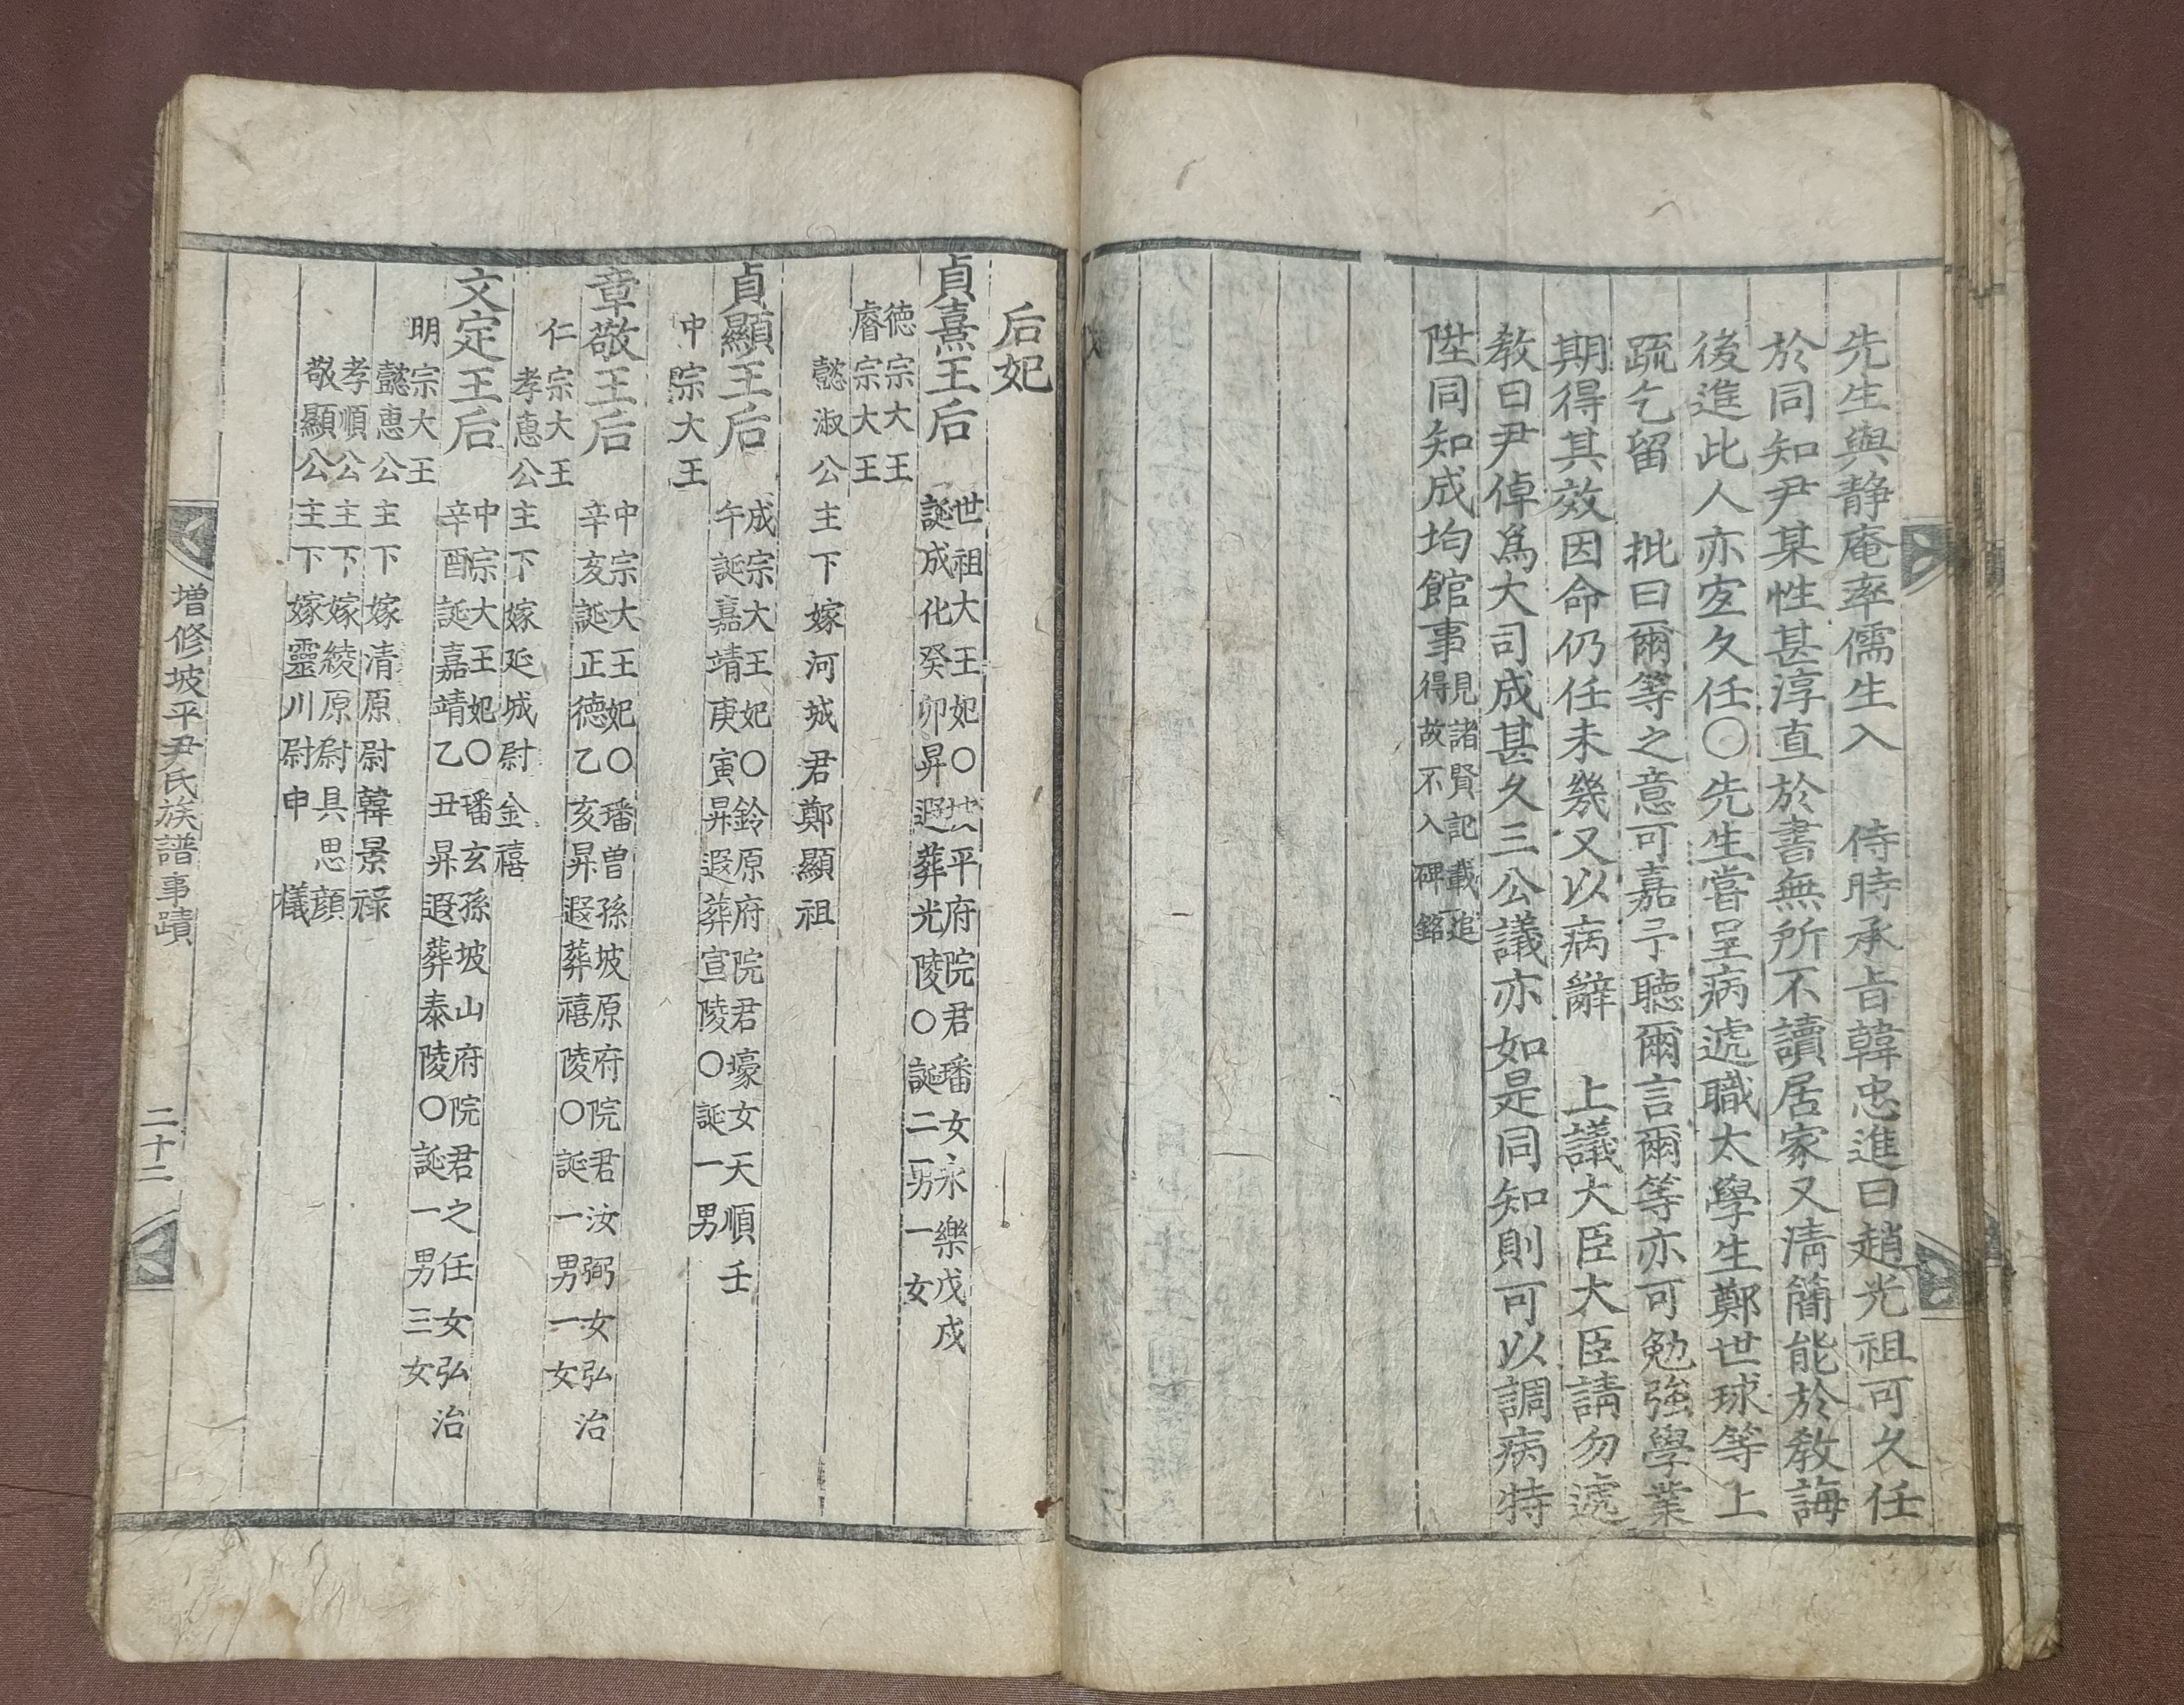 先生與静庵率儒生入 侍時承旨韓忠進曰趙光祖可久任
於同知尹某性甚淳直於書無所不讀居家又淸簡能於敎誨
後進此人亦宜久任○先生嘗呈病遞職太學生鄭世球等上
疏乞留 批曰爾等之意可嘉予聽爾言爾等亦可勉強學業
期得其效因命仍任未幾又以病辭 上議大臣大臣請勿遞
敎曰尹倬爲大司成甚久三公議亦如是同知則可以調病特
陞同知成均館事見諸賢記載追
得故不入碑銘
后妃
貞熹王后 世祖大王妃○坡平府院君璠女永樂戊戌
誕成化癸卯昇遐葬光陵○誕二男一女
德宗大王
睿宗大王
懿淑公主下嫁河城君鄭顯祖
貞顯王后 成宗大王妃○鈴原府院君壕女天順壬
午誕嘉靖庚寅昇遐葬宣陵○誕一男
中宗大王
章敬王后 中宗大王妃○璠曾孫坡原府院君汝弼女弘治
辛亥誕正德乙亥昇遐葬禧陵○誕一男一女
仁宗大王
孝惠公主下嫁延城尉金禧
文定王后 中宗大王妃○璠玄孫坡山府院君之任女弘治
辛酉誕嘉靖乙丑昇遐葬泰陵○誕一男三女
明宗大王
懿惠公主下嫁清原尉韓景祿
孝順公主下嫁綾原尉具思顔
敬顯公主下嫁靈川尉申檥
增修坡平尹氏族譜事蹟 二十二